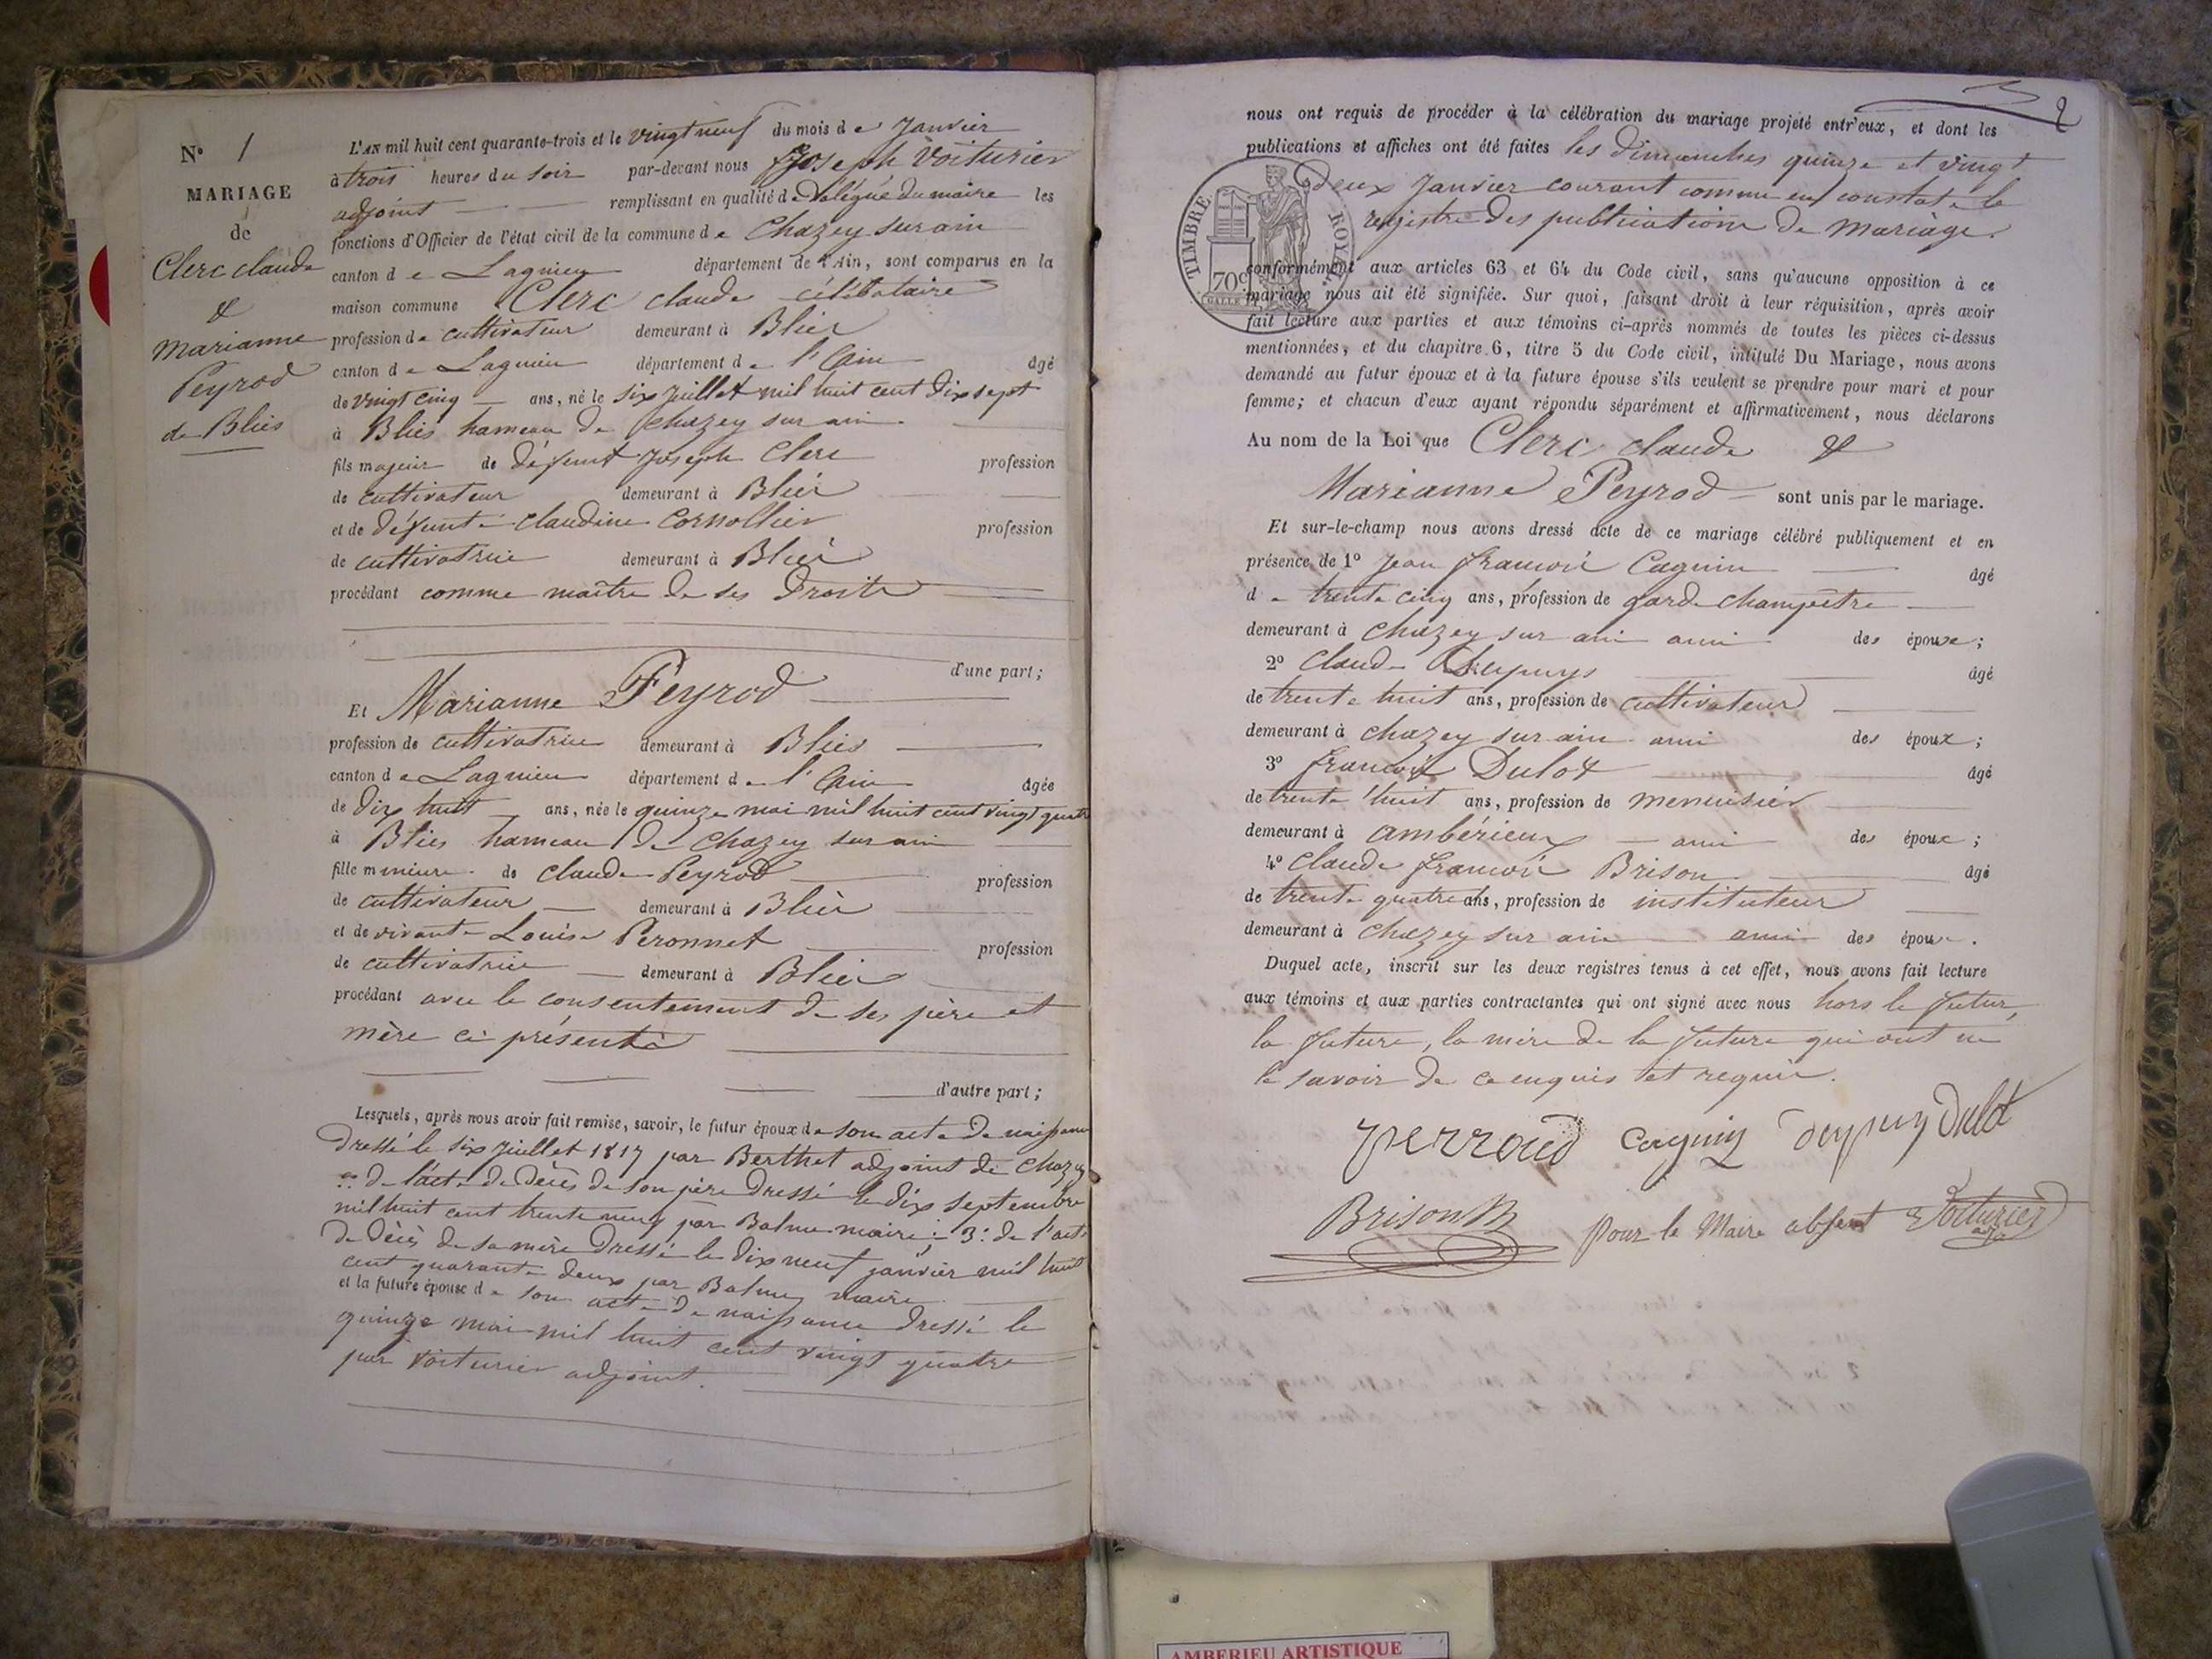 N° 1
MARIAGE
de
Clerc claude
&
Marianne
Peyrod
de Blies
L'AN mil huit cent quarante-trois et le vingt neuf du mois de Janvier
à trois heures du soir par-devant nous Joseph Voiturier
adjoint remplissant en qualité de délégué du maire les
fonctions d'Officier de l'état civil de la commune de Chazey sur ain
canton de Lagnieu département de l'Ain, sont comparus en la
maison commune Clerc claude célibataire
profession de cultivateur demeurant à Blies
canton de Lagnieu département de l'Ain âgé
de vingt cinq ans, né le six juillet mil huit cent dix sept
à Blies hameau de Chazey sur ain
fils majeur de défunt Joseph Clerc profession
de cultivateur demeurant à Blies
et de défunte claudine Cornollier profession
de cultivatrice demeurant à Blies
procédant comme maître de ses droits
d'une part;
Et Marianne Peyrod
profession de cultivatrice demeurant à Blies
canton de Lagnieu département de l'Ain âgée
de dix huit ans, née le quinze mai mil huit cent vingt quatre
à Blies hameau de Chazey sur ain
fille mineure de claude Peyrod profession
de cultivateur demeurant à Blies
et de vivante Louise Peronnet profession
de cultivatrice demeurant à Blies
procédant avec le consentement de ses père et
mère ci présents
d'autre part;
Lesquels, après nous avoir fait remise, savoir, le futur époux de son acte de naissance
dressé le six juillet 1817 par Berthet adjoint de Chazey
2° de l'acte de décès de son père dressé le dix septembre
mil huit cent trente neuf par Balme maire; 3° de l'acte
de décès de sa mère dressé le dix neuf janvier mil huit
cent quarante deux par Balme maire
et la future épouse de son acte de naissance dressé le
quinze mai mil huit cent vingt quatre
par Voiturier adjoint.
2
nous ont requis de procéder à la célébration du mariage projeté entr'eux, et dont les
publications et affiches ont été faites les dimanches quinze et vingt
deux Janvier courant comme en constate le
registre des publications de mariage.
TIMBRE ROYAL
70c
conformément aux articles 63 et 64 du Code civil, sans qu'aucune opposition à ce
mariage nous ait été signifiée. Sur quoi, faisant droit à leur réquisition, après avoir
fait lecture aux parties et aux témoins ci-après nommés de toutes les pièces ci-dessus
mentionnées, et du chapitre 6, titre 5 du Code civil, intitulé Du Mariage, nous avons
demandé au futur époux et à la future épouse s'ils veulent se prendre pour mari et pour
femme; et chacun d'eux ayant répondu séparément et affirmativement, nous déclarons
Au nom de la Loi que Clerc claude &
Marianne Peyrod sont unis par le mariage.
Et sur-le-champ nous avons dressé acte de ce mariage célébré publiquement et en
présence de 1° Jean françois Cagnin âgé
de trente cinq ans, profession de garde champêtre
demeurant à Chazey sur ain ami des époux;
2° Claude âgé
de trente huit ans, profession de cultivateur
demeurant à chazey sur ain ami des époux;
3° françois Dulot âgé
de trente huit ans, profession de menuisier
demeurant à ambérieux ami des époux;
4° Claude françois Brison âgé
de trente quatre ans, profession de instituteur
demeurant à Chazey sur ain ami des époux.
Duquel acte, inscrit sur les deux registres tenus à cet effet, nous avons fait lecture
aux témoins et aux parties contractantes qui ont signé avec nous hors le futur,
la future, la mère de la future qui ont ne
le savoir de ce enquis et requis.
perroud Cagnin Dulot
Brison
pour le Maire absent Voiturier
AMBERIEU ARTISTIQUE